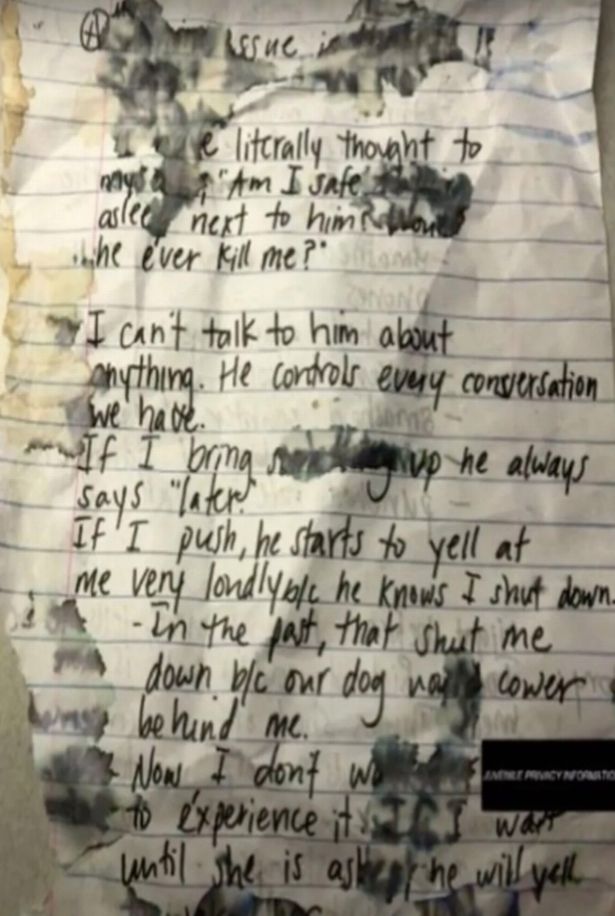 A issue i
e literally thought to
mys "Am I safe
aslee next to him?
he ever kill me?"
I can't talk to him about
anything. He controls every conversation
we have.
If I bring up he always
says "later."
If I push, he starts to yell at
me very loudly b/c he knows I shut down.
- In the past, that shut me
down b/c our dog would cower
behind me.
- Now I don't
to experience it. If I wait
until she is asleep, he will yell
JUVENILE PRIVACY INFORMATIO